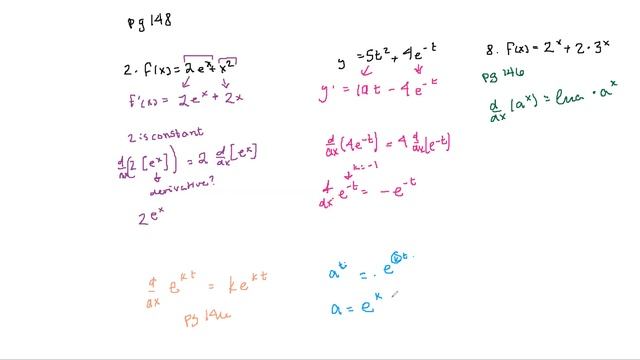 pg 148
2. f(x) = 2e^x + x^2
f'(x) = 2e^x + 2x
2 is constant
d/dx (2 [e^x]) = 2 d/dx [e^x]
derivative?
2e^x
y = 5t^2 + 4e^-t
y' = 10t - 4e^-t
d/dx (4e^-t) = 4 d/dx [e^-t]
k = -1
d/dx e^-t = - e^-t
8. f(x) = 2^x + 2 · 3^x
pg 146
d/dx (a^x) = ln a · a^x
d/dx e^kt = k e^kt
pg 146
a^t = . e^kt.
a = e^k